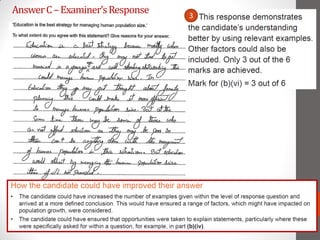 Answer C – Examiner's Response
'Education is the best strategy for managing human population size.'
To what extent do you agree with this statement? Give reasons for your answer.
Education is a best strategy because mostly when
women are educated. They may not
married in a younger
could manage human population size.
Education they may get thought about family
planning that could make it more efficient
to manage human population size. But at the
same time there may be some of those who
can not afford education so they may be cos in
there can't do anything
of human population
would
there if
3 This response demonstrates
the candidate's understanding
better by using relevant examples.
Other factors could also be
included. Only 3 out of the 6
marks are achieved.
Mark for (b)(vi) = 3 out of 6
How the candidate could have improved their answer
• The candidate could have increased the number of examples given within the level of response question and
arrived at a more defined conclusion. This would have ensured a range of factors, which might have impacted on
population growth, were considered.
• The candidate could have ensured that opportunities were taken to explain statements, particularly where these
were specifically asked for within a question, for example, in part (b)(iv).